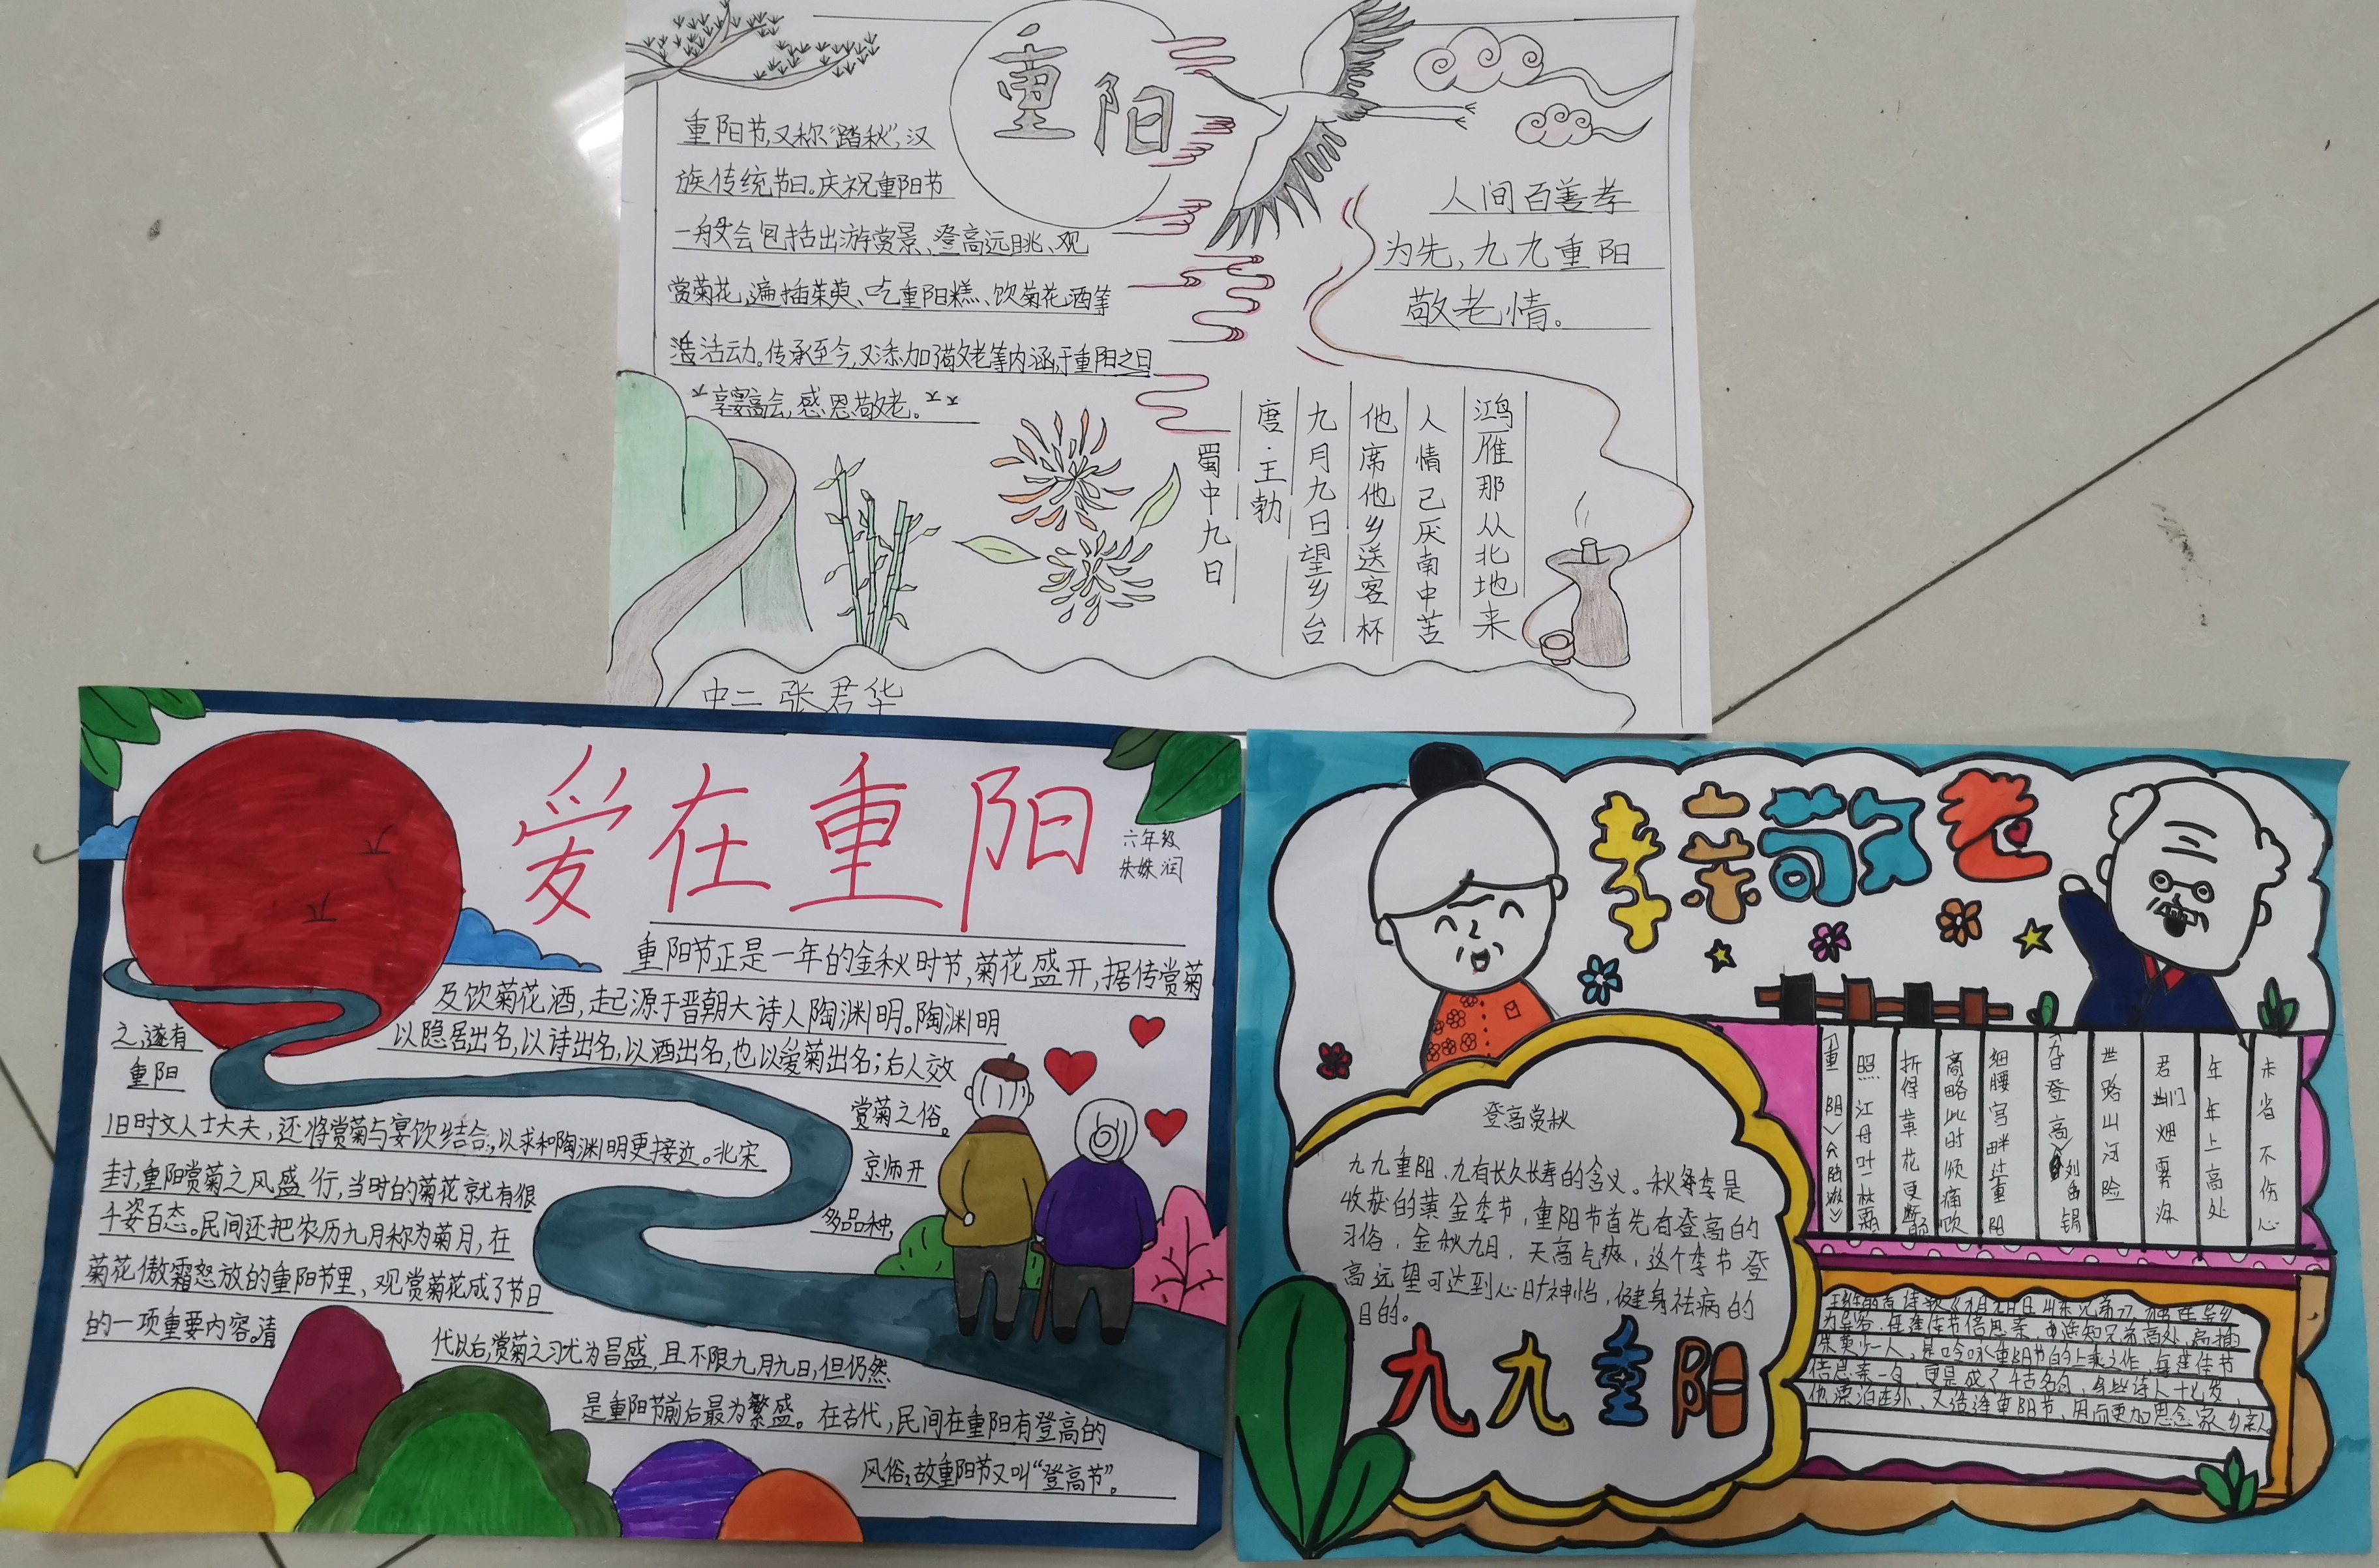 重阳
重阳节,又称“踏秋”,汉
族传统节日。庆祝重阳节
一般会包括出游赏景、登高远眺、观
赏菊花,遍插茱萸、吃重阳糕、饮菊花酒等
活动。传承至今,又添加了敬老等内涵,于重阳之日
享宴高会,感恩敬老。
人间百善孝
为先,九九重阳
敬老情。
蜀中九日
唐·王勃
九月九日望乡台
他席他乡送客杯
人情已厌南中苦
鸿雁那从北地来
中二 张君华
爱在重阳
六年级
朱姝润
重阳节正是一年的金秋时节,菊花盛开,据传赏菊
及饮菊花酒,起源于晋朝大诗人陶渊明。陶渊明
以隐居出名,以诗出名,以酒出名,也以爱菊出名;后人效
之,遂有
重阳
赏菊之俗。
旧时文人士大夫,还将赏菊与宴饮结合,以求和陶渊明更接近。北宋
京师开
封,重阳赏菊之风盛行,当时的菊花就有很
多品种,
千姿百态。民间还把农历九月称为菊月,在
菊花傲霜怒放的重阳节里,观赏菊花成了节日
的一项重要内容。清
代以后,赏菊之习尤为昌盛,且不限九月九日,但仍然
是重阳节前后最为繁盛。在古代,民间在重阳有登高的
风俗,故重阳节又叫“登高节”。
孝亲敬老
登高赏秋
九九重阳、九有长久长寿的含义。秋季是
收获的黄金季节,重阳节首先有登高的
习俗,金秋九月,天高气爽,这个季节登
高远望可达到心旷神怡,健身祛病的
目的。
九九重阳
照江丹叶一林霜
折得黄花更断肠
高
此时
痛饮
细腰宫畔过重阳
九日登高
刘禹锡
世路山河险
君门烟雾深
年年上高处
未省不伤心
为异客,每逢佳节倍思亲,
茱萸少一人,是吟咏重阳节的上乘之作,每逢佳节
倍思亲一句,更是成了千古名句,
他漂泊在外,又
重阳节,因而更加思念家乡亲人。